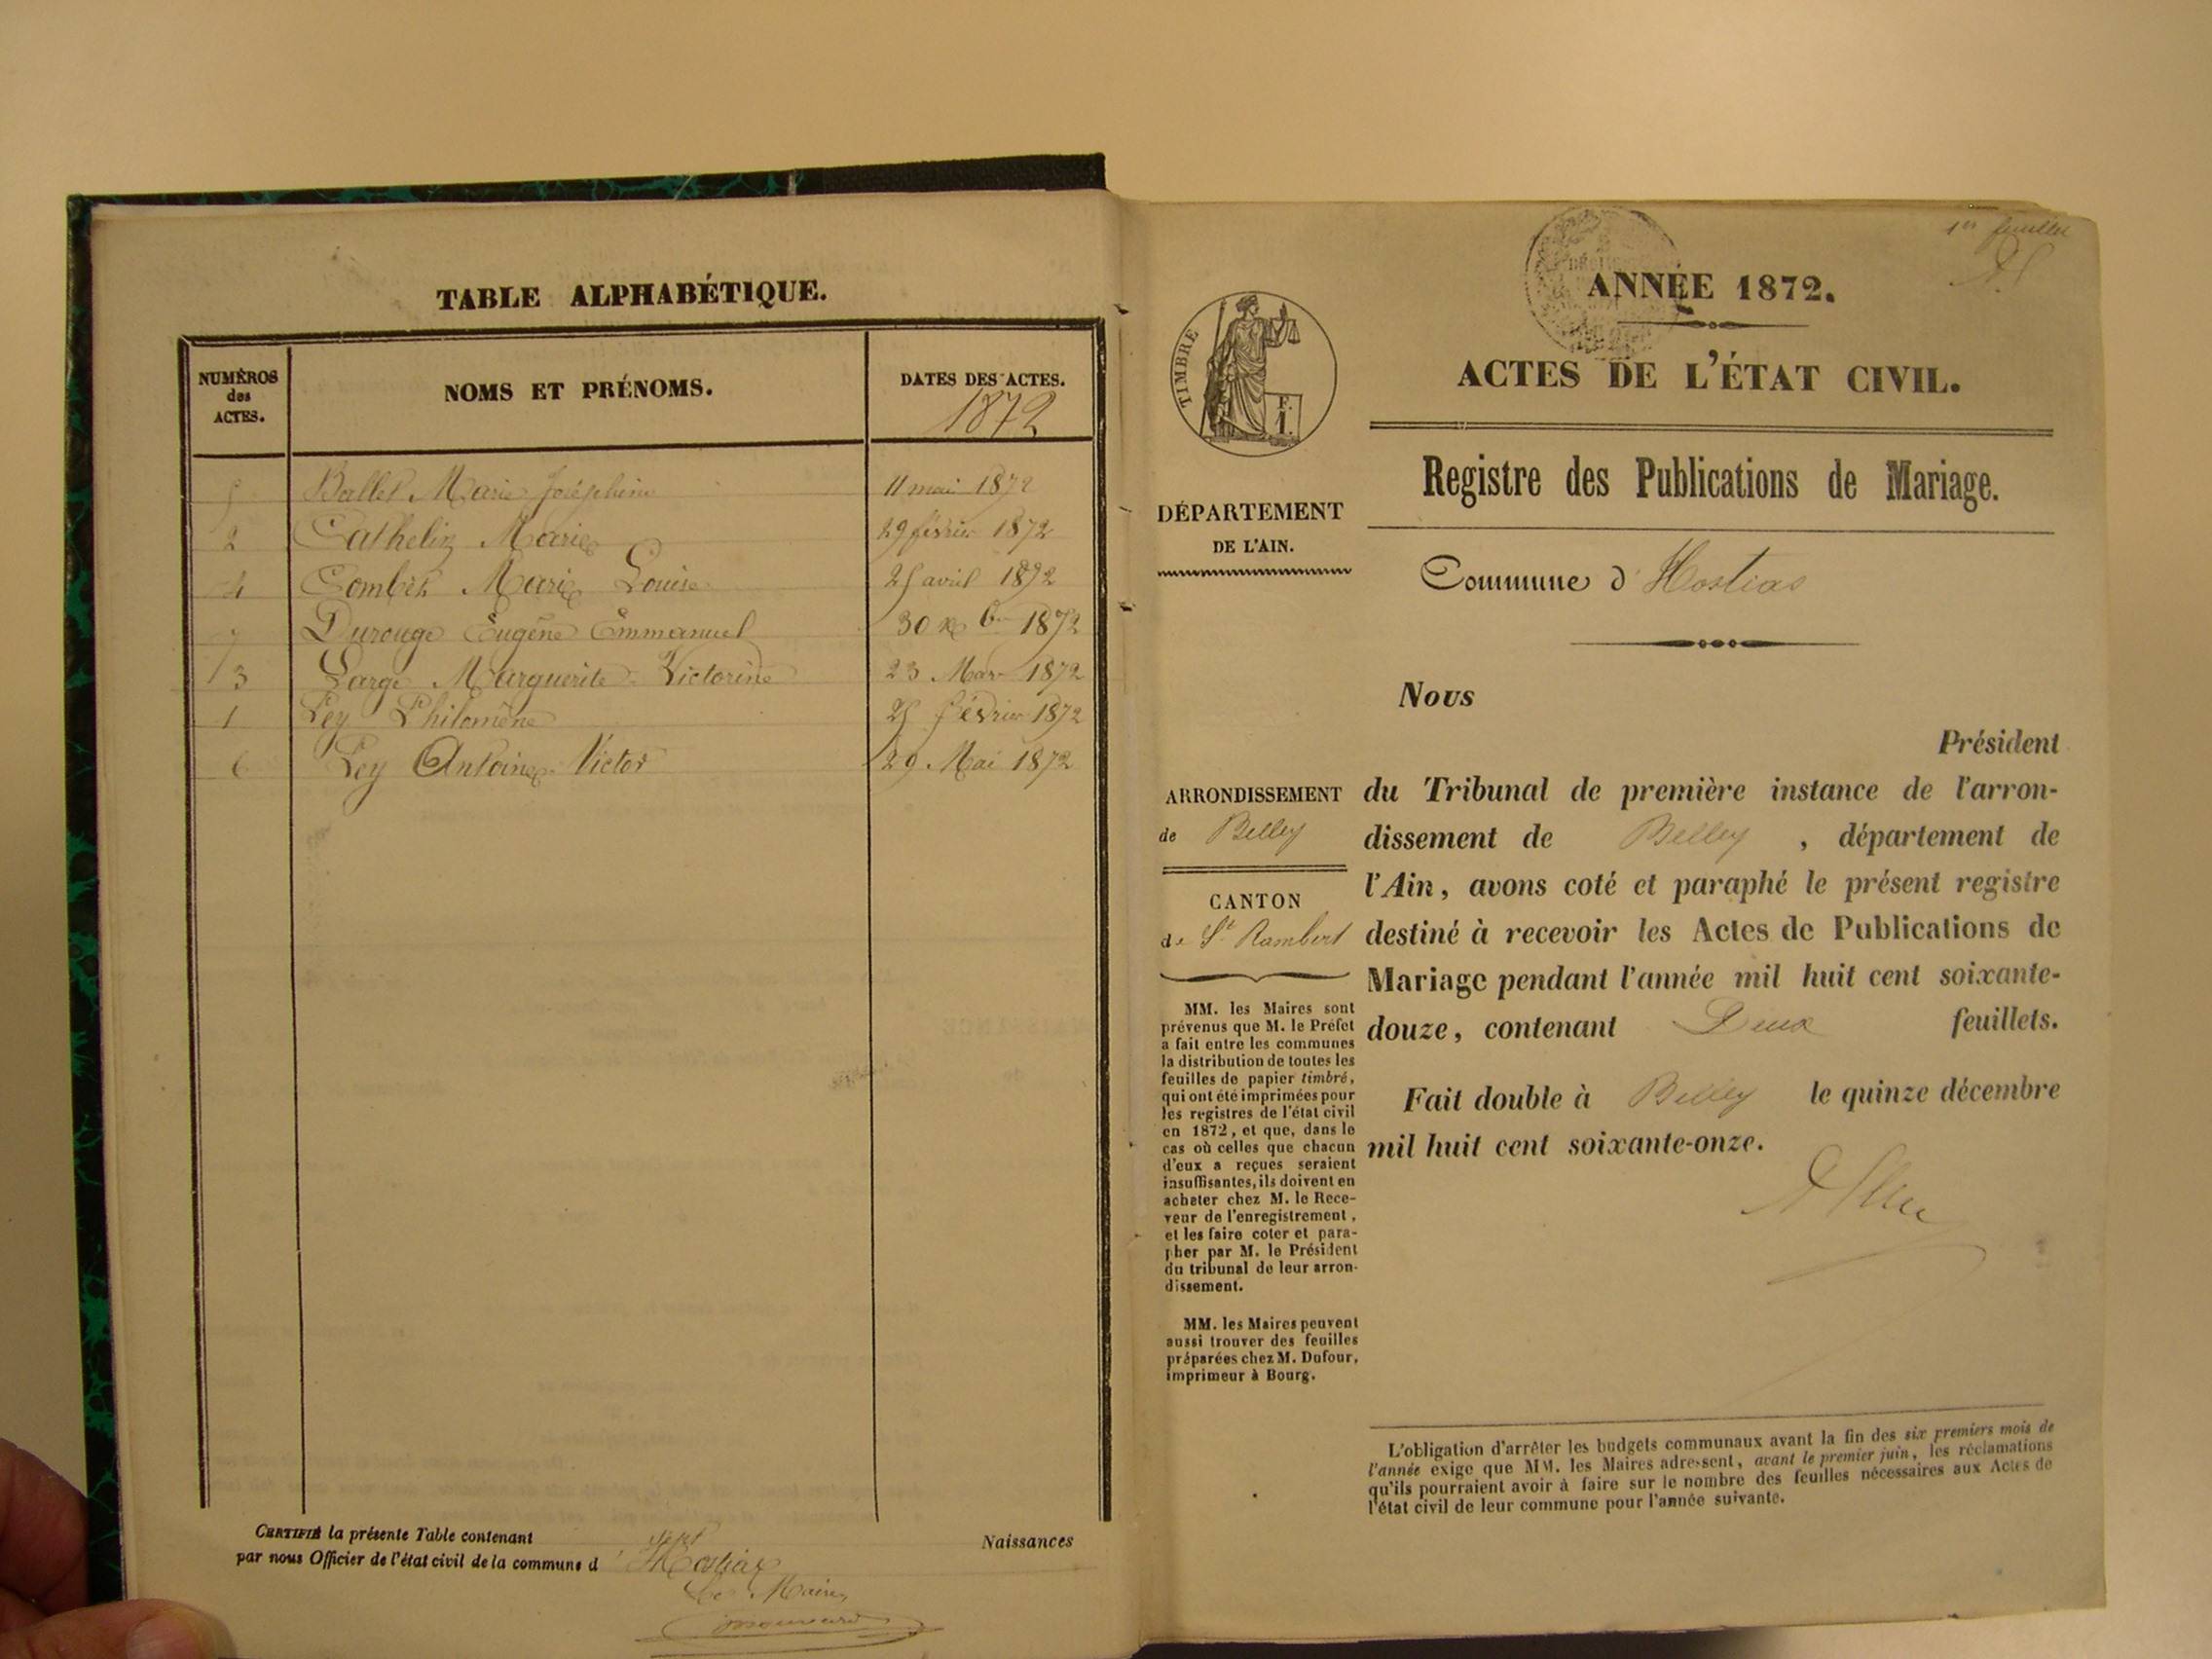 TABLE ALPHABÉTIQUE.
NUMÉROS des ACTES.
NOMS ET PRÉNOMS.
DATES DES ACTES.
1872
5 Ballet Marie Joséphine 11 mai 1872
2 Cathelin Marie 29 février 1872
4 Combet Marie Louise 25 avril 1872
7 Durouge Eugène Emmanuel 30 Xbre 1872
3 Large Marguerite Victorine 23 Mars 1872
1 Pey Philomène 25 février 1872
6 Pey Antoine Victor 29 Mai 1872
CERTIFIÉ la présente Table contenant sept Naissances
par nous Officier de l'état civil de la commune d'Hostiaz
Le Maire,
1er feuillet
ANNÉE 1872.
ACTES DE L'ÉTAT CIVIL.
Registre des Publications de Mariage.
Commune d'Hostias
TIMBRE
F.
1.
DÉPARTEMENT
DE L'AIN.
ARRONDISSEMENT
de Belley
CANTON
de St Rambert
MM. les Maires sont
prévenus que M. le Préfet
a fait entre les communes
la distribution de toutes les
feuilles de papier timbré,
qui ont été imprimées pour
les registres de l'état civil
en 1872, et que, dans le
cas où celles que chacun
d'eux a reçues seraient
insuffisantes, ils doivent en
acheter chez M. le Rece-
veur de l'enregistrement,
et les faire coter et para-
pher par M. le Président
du tribunal de leur arron-
dissement.
MM. les Maires peuvent
aussi trouver des feuilles
préparées chez M. Dufour,
imprimeur à Bourg.
Nous
Président
du Tribunal de première instance de l'arron-
dissement de Belley, département de
l'Ain, avons coté et paraphé le présent registre
destiné à recevoir les Actes de Publications de
Mariage pendant l'année mil huit cent soixante-
douze, contenant Deux feuillets.
Fait double à Belley le quinze décembre
mil huit cent soixante-onze.
L'obligation d'arrêter les budgets communaux avant la fin des six premiers mois de
l'année exige que MM. les Maires adressent, avant le premier juin, les réclamations
qu'ils pourraient avoir à faire sur le nombre des feuilles nécessaires aux Actes de
l'état civil de leur commune pour l'année suivante.